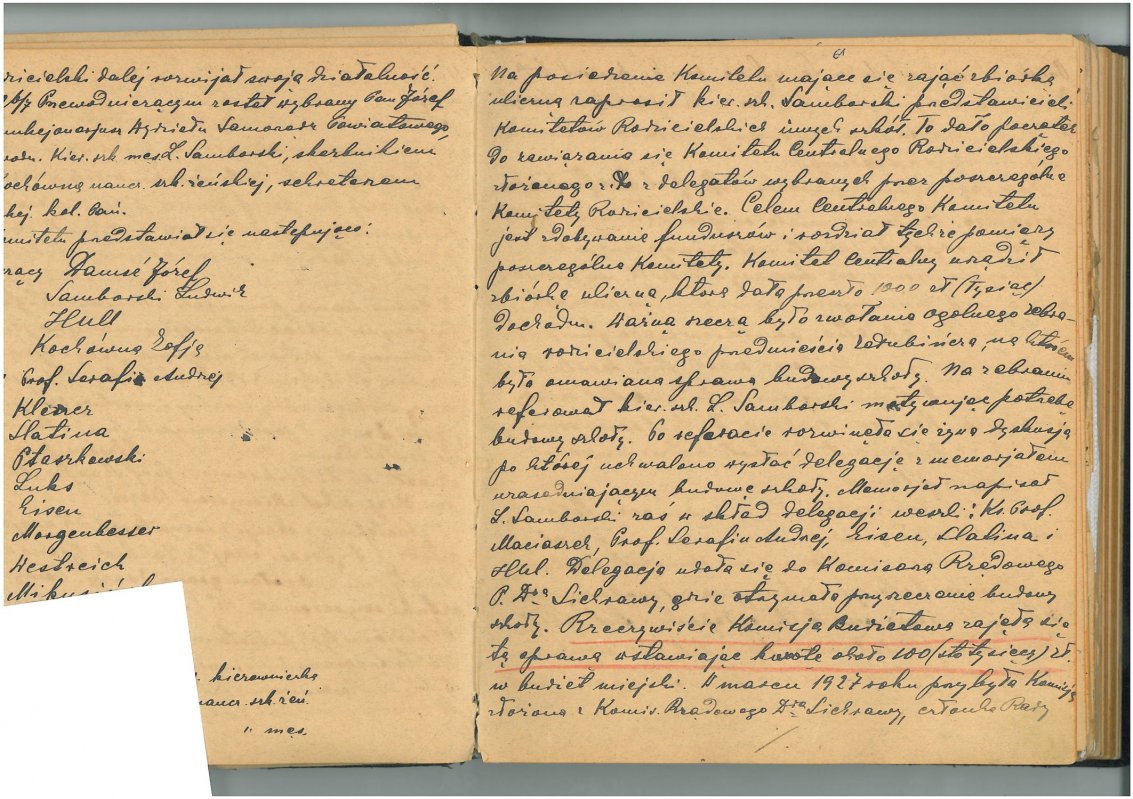 dzicielski dalej rozwijał swoją działalność.
b/z Przewodniczącym został wybrany Pan Józef
Wydziału Samorząd. Powiatowego,
Kier. szk. męs. L. Samborski, skarbnikiem
ochówna naucz. szk. żeńskiej, sekretarzem
kol. Pań.
omitetu przedstawiał się następująco:
Damsé Józef
Samborski Ludwik
Hull
Kochówna Zofja
Prof. Serafin Andrej
Klener
Slatina
Ptaszkowski
Luks
Eisen
Morgenbesser
Westreich
kierowniczka
naucz. szk. żeń.
" męs.
61
Na posiedzenie Komitetu mające się zająć zbiórką
uliczną zaprosił kier. szk. Samborski przedstawicieli
Komitetów Rodzicielskich innych szkół. To dało początek
do zawiązania się Komitetu Centralnego Rodzicielskiego
złożonego z z delegatów wybranych przez poszczególne
Komitety Rodzicielskie. Celem Centralnego Komitetu
jest zdobywanie funduszów i rozdział tychże pomiędzy
poszczególne Komitety. Komitet Centralny urządził
zbiórkę uliczną, która dała przeszło 1000 zł (tysiąc)
dochodu. Ważną rzeczą było zwołanie ogólnego zebra-
nia rodzicielskiego przedmieścia Zadubińcza, na którem
było omawiana sprawa budowy szkoły. Na zebraniu
referował kier. szk. L. Samborski motywując potrzebę
budowy szkoły. Po referacie rozwinęła się żywa dyskusja
po której uchwalono wysłać delegację z memorjałem
uzasadniającym budowę szkoły. Memorjał napisał
L. Samborski zaś w skład delegacji weszli: Ks. Prof.
Maciaszek, Prof. Serafin Andrej, Eisen, Slatina i
Hul. Delegacja udała się do Komisarza Rządowego
P. Dra Sichrawy, gdzie otrzymała przyrzeczenie budowy
szkoły. Rzeczywiście Komisja Budżetowa zajęła się
tą sprawą wstawiając kwotę około 100 (sto tysięcy) zł.
w budżet miejski. W marcu 1927 roku przybyła Komisja
złożona z Komis. Rządowego Dra Sichrawy, członka Rady